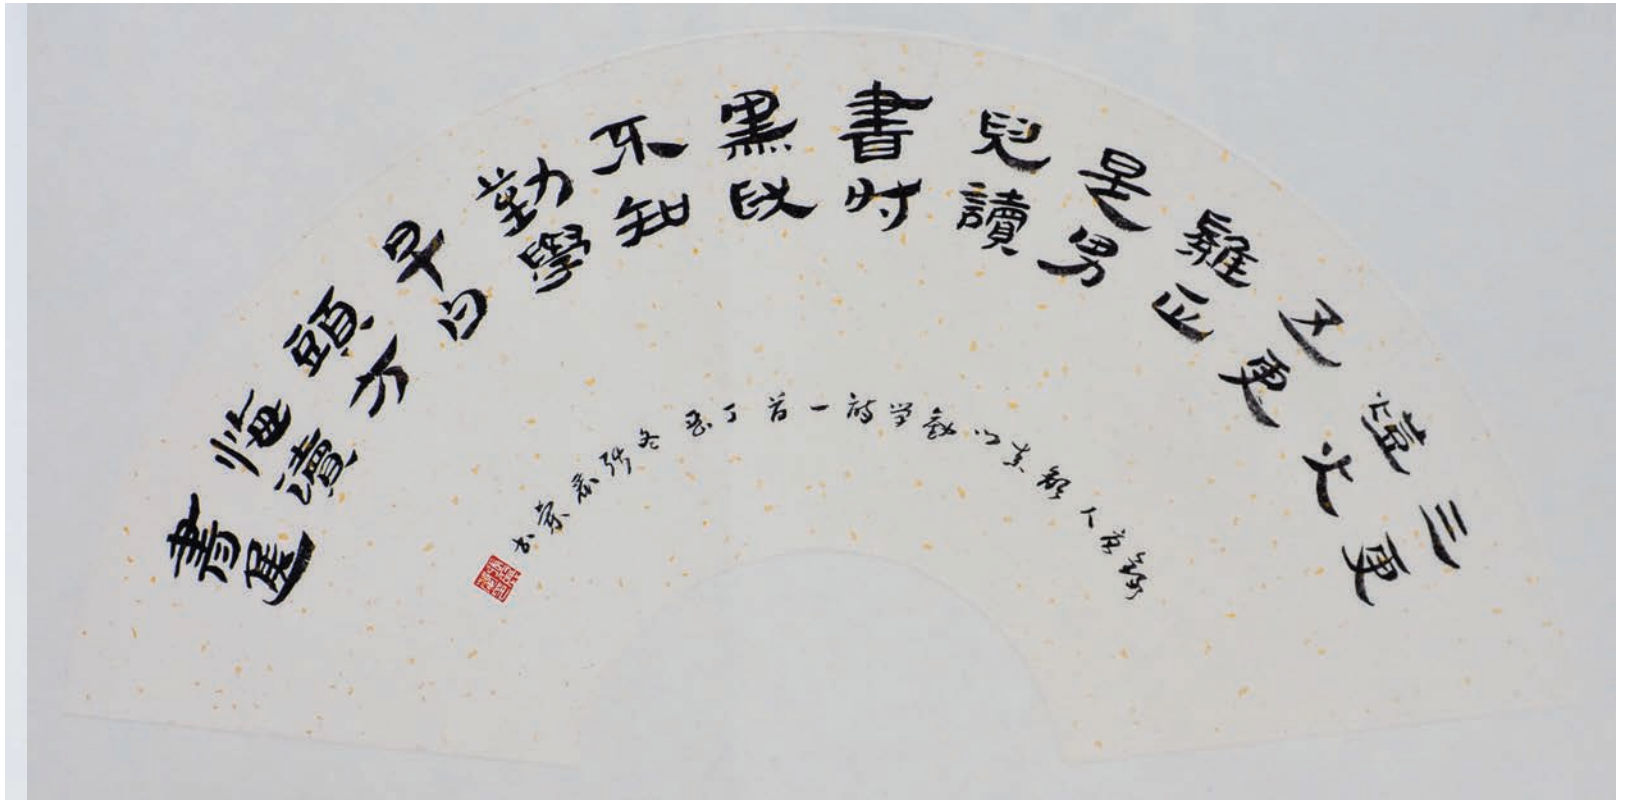 三更
燈火
五更
雞正
是男
兒讀
書时
黑以
不知
勤學
早白
頭方
悔讀
書遲
錄唐人顏真卿勸学詩一首丁酉冬张荣书